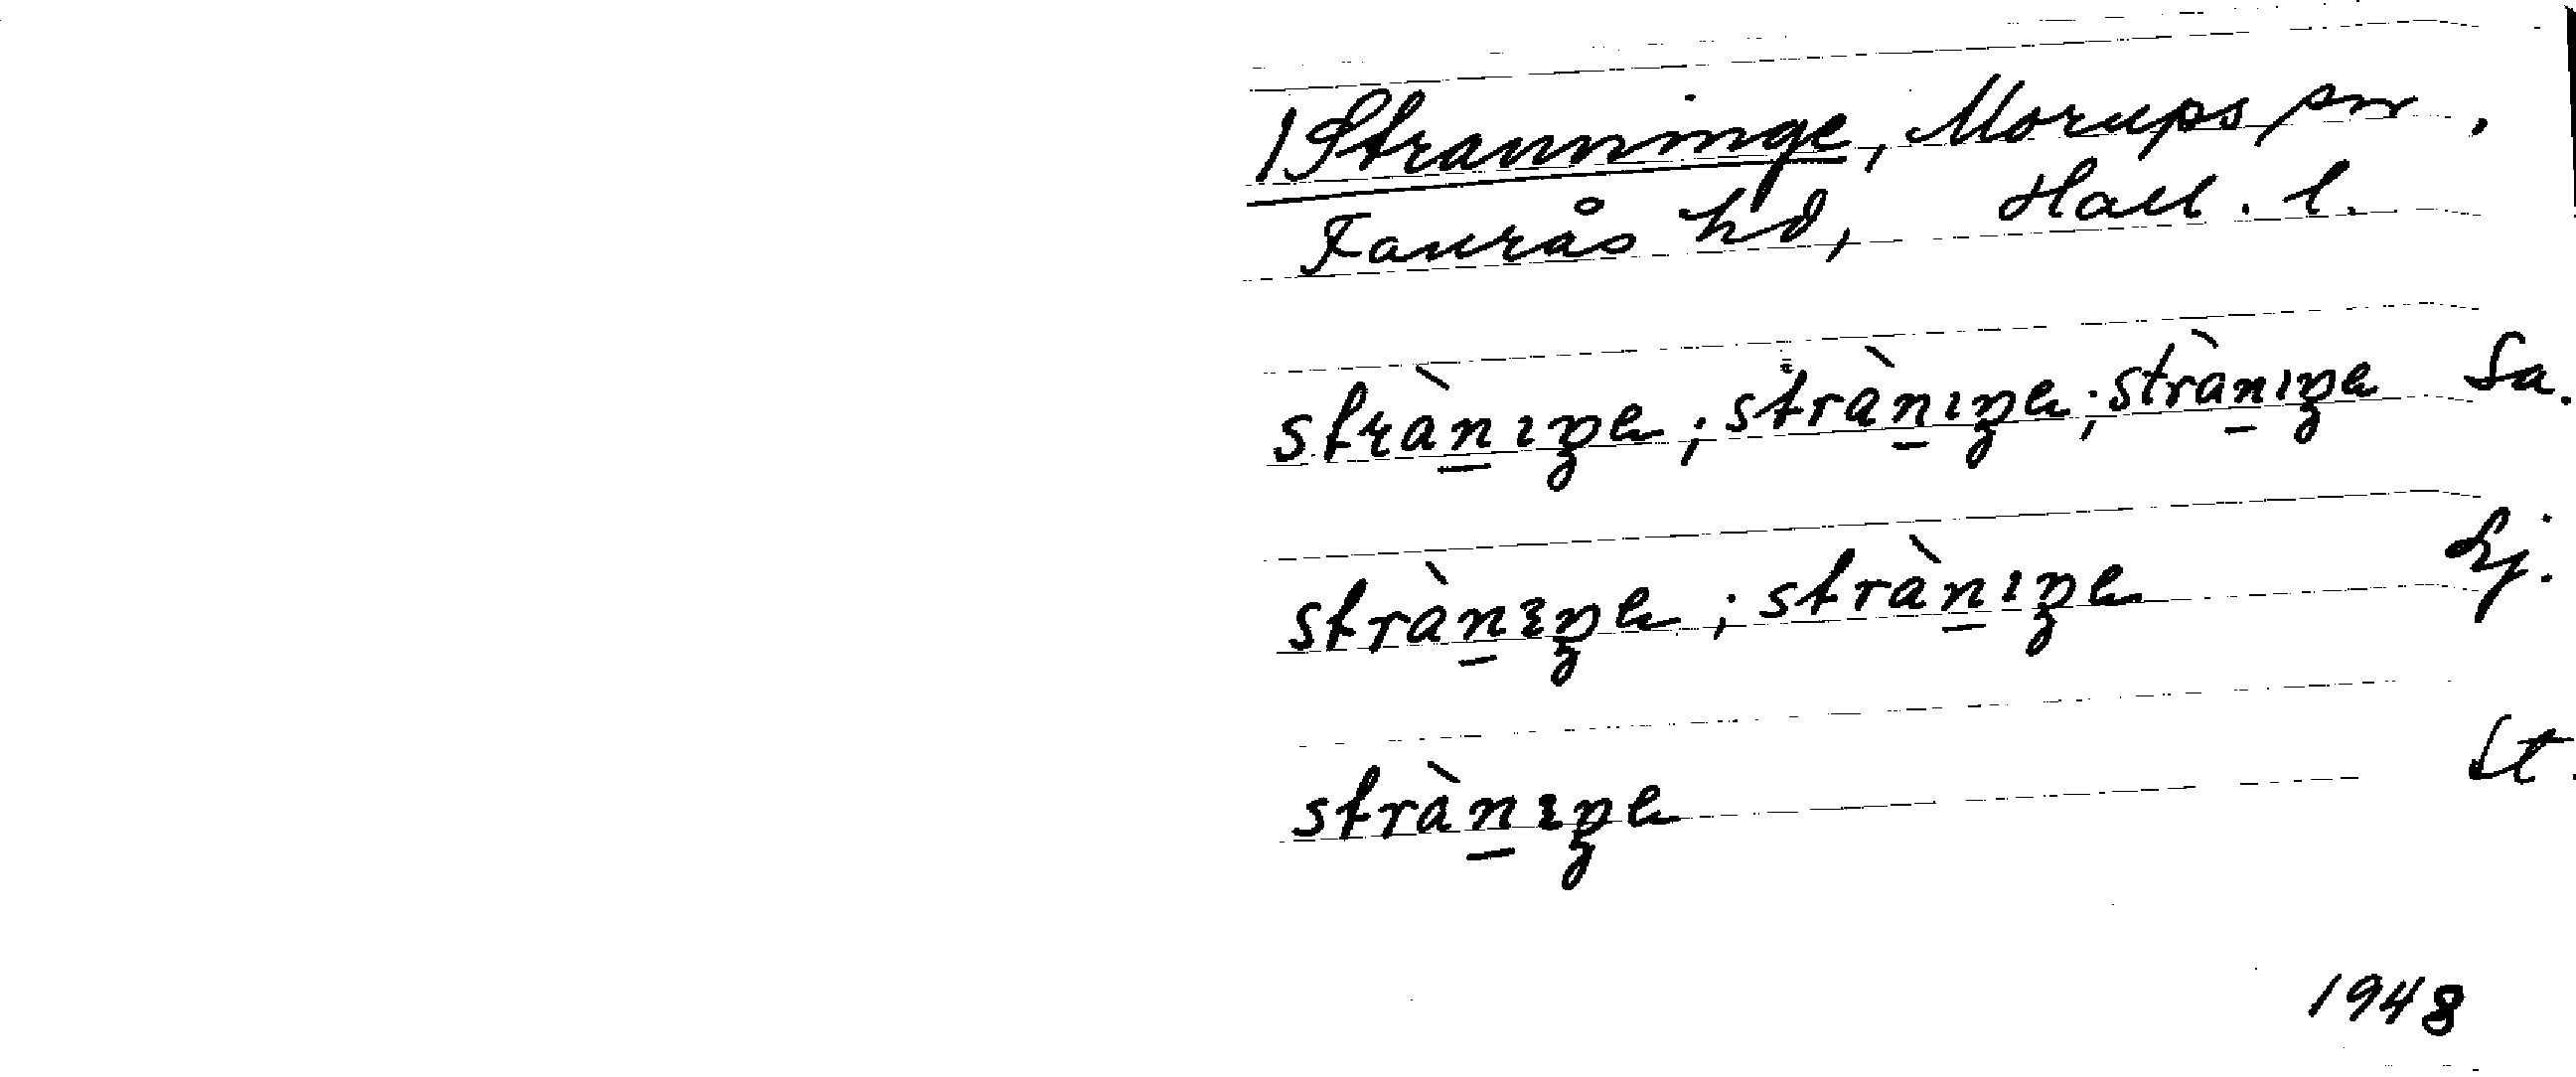 1 Stranninge, Morups sn.
Faurås hd, Hall. l.
stràn̲ıŋe; stràn̲ıŋe; stràn̲ıŋe Sa.
stràn̲ıŋe; stràn̲ıŋe Lj.
stràn̲ıŋe St.
1948